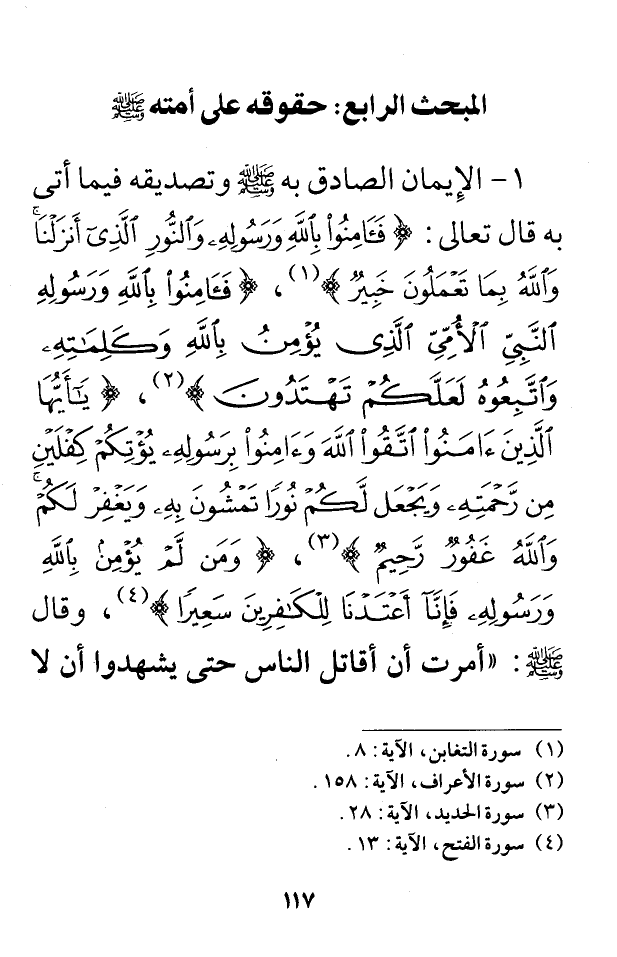 المبحث الرابع: حقوقه على أمته ﷺ
١- الإيمان الصادق به ﷺ وتصديقه فيما أتى
به قال تعالى: ﴿ فَـَٔامِنُوا۟ بِٱللَّهِ وَرَسُولِهِۦ وَٱلنُّورِ ٱلَّذِىٓ أَنزَلْنَاۚ
وَٱللَّهُ بِمَا تَعْمَلُونَ خَبِيرٌ ﴾(١)، ﴿ فَـَٔامِنُوا۟ بِٱللَّهِ وَرَسُولِهِ
ٱلنَّبِىِّ ٱلْأُمِّىِّ ٱلَّذِى يُؤْمِنُ بِٱللَّهِ وَكَلِمَـٰتِهِۦ
وَٱتَّبِعُوهُ لَعَلَّكُمْ تَهْتَدُونَ ﴾(٢)، ﴿ يَـٰٓأَيُّهَا
ٱلَّذِينَ ءَامَنُوا۟ ٱتَّقُوا۟ ٱللَّهَ وَءَامِنُوا۟ بِرَسُولِهِۦ يُؤْتِكُمْ كِفْلَيْنِ
مِن رَّحْمَتِهِۦ وَيَجْعَل لَّكُمْ نُورًا تَمْشُونَ بِهِۦ وَيَغْفِرْ لَكُمْۚ
وَٱللَّهُ غَفُورٌ رَّحِيمٌ ﴾(٣)، ﴿ وَمَن لَّمْ يُؤْمِنۢ بِٱللَّهِ
وَرَسُولِهِۦ فَإِنَّآ أَعْتَدْنَا لِلْكَـٰفِرِينَ سَعِيرًا ﴾(٤)، وقال
ﷺ: «أمرت أن أقاتل الناس حتى يشهدوا أن لا
(١) سورة التغابن، الآية: ٨.
(٢) سورة الأعراف، الآية: ١٥٨.
(٣) سورة الحديد، الآية: ٢٨.
(٤) سورة الفتح، الآية: ١٣.
١١٧